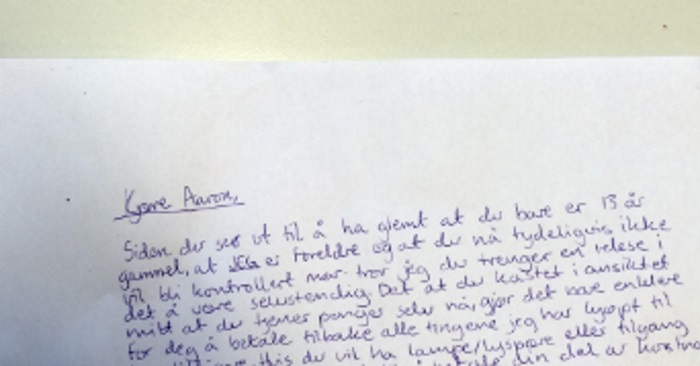 Kjære Aaron,
Siden du ser ut til å ha glemt at du bare er 13 år
gammel, at JEG er foreldre og at du nå tydeligvis ikke
vil bli kontrollert mer tror jeg du trenger en lekse i
det å være selvstendig. Det at du kastet i ansiktet
mitt at du tjener penger selv nå, gjør det bare enklere
for deg å betale tilbake alle tingene jeg har kjøpt til
this du vil ha lampe/lyspære eller tilgang
din del av